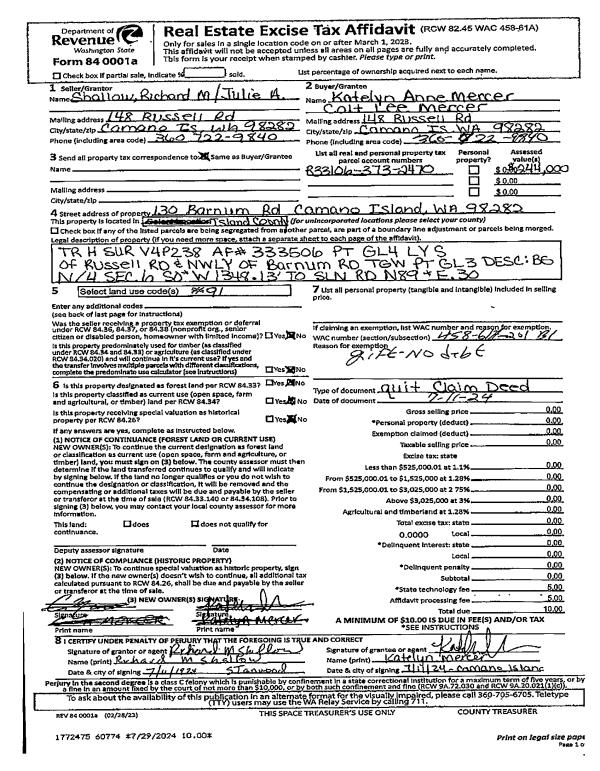 Department of
Revenue
Washington State
Form 84 0001a
Real Estate Excise Tax Affidavit (RCW 82.45 WAC 458-61A)
Only for sales in a single location code on or after March 1, 2023.
This affidavit will not be accepted unless all areas on all pages are fully and accurately completed.
This form is your receipt when stamped by cashier. Please type or print.
Check box if partial sale, indicate % sold.
List percentage of ownership acquired next to each name.
1 Seller/Grantor
Name Shallow, Richard M / Julie A.
Mailing address 148 Russell Rd
City/state/zip Camano Is. WA 98282
Phone (including area code) 360 722-9840
2 Buyer/Grantee
Name Katelyn Anne Mercer
Colt Lee Mercer
Mailing address 148 Russell Rd
City/state/zip Camano Is. WA 98282
Phone (including area code) 360-722-9840
3 Send all property tax correspondence to: Same as Buyer/Grantee
Name
Mailing address
City/state/zip
List all real and personal property tax parcel account numbers
R33106-373-2470
Personal property?
Assessed value(s)
244,000
$ 0.00
$ 0.00
4 Street address of property 130 Barnum Rd Camano Island, WA 98282
This property is located in Island County (for unincorporated locations please select your county)
Check box if any of the listed parcels are being segregated from another parcel, are part of a boundary line adjustment or parcels being merged.
Legal description of property (if you need more space, attach a separate sheet to each page of the affidavit).
TR H SUR V4P238 AF# 333606 PT GL4 LYS
OF Russell RD & NWLY OF Barnum RD TGW PT GL3 DESC: BG
N/4 SEC. 6 S0* W 1348.13' TO SLN RD N89* E.30
5 Select land use code(s) 91
Enter any additional codes
(see back of last page for instructions)
Was the seller receiving a property tax exemption or deferral
under RCW 84.36, 84.37, or 84.38 (nonprofit org., senior
citizen or disabled person, homeowner with limited income)? Yes No
Is this property predominately used for timber (as classified
under RCW 84.34 and 84.33) or agriculture (as classified under
RCW 84.34.020) and will continue in it's current use? If yes and
the transfer involves multiple parcels with different classifications,
complete the predominate use calculator (see instructions) Yes No
6 Is this property designated as forest land per RCW 84.33? Yes No
Is this property classified as current use (open space, farm
and agricultural, or timber) land per RCW 84.34? Yes No
Is this property receiving special valuation as historical
property per RCW 84.26? Yes No
If any answers are yes, complete as instructed below.
(1) NOTICE OF CONTINUANCE (FOREST LAND OR CURRENT USE)
NEW OWNER(S): To continue the current designation as forest land
or classification as current use (open space, farm and agriculture, or
timber) land, you must sign on (3) below. The county assessor must then
determine if the land transferred continues to qualify and will indicate
by signing below. If the land no longer qualifies or you do not wish to
continue the designation or classification, it will be removed and the
compensating or additional taxes will be due and payable by the seller
or transferor at the time of sale (RCW 84.33.140 or 84.34.108). Prior to
signing (3) below, you may contact your local county assessor for more
information.
This land: does does not qualify for
continuance.
Deputy assessor signature Date
(2) NOTICE OF COMPLIANCE (HISTORIC PROPERTY)
NEW OWNER(S): To continue special valuation as historic property, sign
(3) below. If the new owner(s) doesn't wish to continue, all additional tax
calculated pursuant to RCW 84.26, shall be due and payable by the seller
or transferor at the time of sale.
(3) NEW OWNER(S) SIGNATURE
Signature Signature
MERCER Katelyn Mercer
Print name Print name
7 List all personal property (tangible and intangible) included in selling
price.
If claiming an exemption, list WAC number and reason for exemption.
WAC number (section/subsection) 458-61A-201 B1
Reason for exemption
gift-No debt
Type of document quit Claim Deed
Date of document 7-11-24
Gross selling price 0.00
*Personal property (deduct) 0.00
Exemption claimed (deduct) 0.00
Taxable selling price 0.00
Excise tax: state
Less than $525,000.01 at 1.1% 0.00
From $525,000.01 to $1,525,000 at 1.28% 0.00
From $1,525,000.01 to $3,025,000 at 2.75% 0.00
Above $3,025,000 at 3% 0.00
Agricultural and timberland at 1.28% 0.00
Total excise tax: state 0.00
0.0000 Local 0.00
*Delinquent interest: state 0.00
Local 0.00
*Delinquent penalty 0.00
Subtotal 0.00
*State technology fee 5.00
Affidavit processing fee 5.00
Total due 10.00
A MINIMUM OF $10.00 IS DUE IN FEE(S) AND/OR TAX
*SEE INSTRUCTIONS
8 I CERTIFY UNDER PENALTY OF PERJURY THAT THE FOREGOING IS TRUE AND CORRECT
Signature of grantor or agent Richard M Shallow
Name (print) Richard M Shallow
Date & city of signing 7/11/1924 Stanwood
Signature of grantee or agent
Name (print) Katelyn Mercer
Date & city of signing 7/11/24-Camano Island
Perjury in the second degree is a class C felony which is punishable by confinement in a state correctional institution for a maximum term of five years, or by
a fine in an amount fixed by the court of not more than $10,000, or by both such confinement and fine (RCW 9A.72.030 and RCW 9A.20.021(1)(c)).
To ask about the availability of this publication in an alternate format for the visually impaired, please call 360-705-6705. Teletype
(TTY) users may use the WA Relay Service by calling 711.
REV 84 0001a (02/28/23)
THIS SPACE TREASURER'S USE ONLY
COUNTY TREASURER
1772475 60774 $7/29/2024 10.00*
Print on legal size pape
Page 1 o